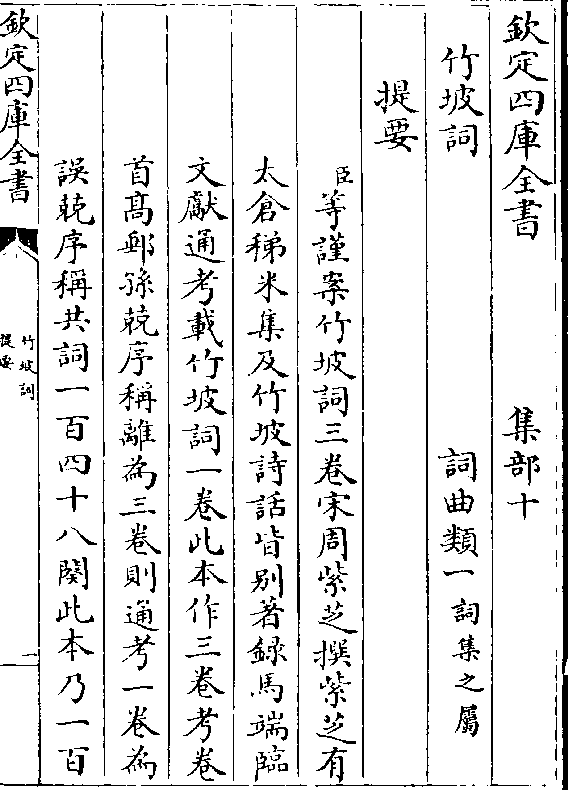 欽定四庫全書　集部十
竹坡詞　詞曲類一詞集之屬
提要
臣等謹案竹坡詞三卷宋周紫芝撰紫芝有
太倉稊米集及竹坡詩話皆别著録馬端臨
文獻通考載竹坡詞一卷此本作三卷考卷
首髙郵孫兢序稱離為三卷則通考一卷為
誤兢序稱共詞一百四十八闋此本乃一百
欽定四庫全書
竹坡詞
提要
一